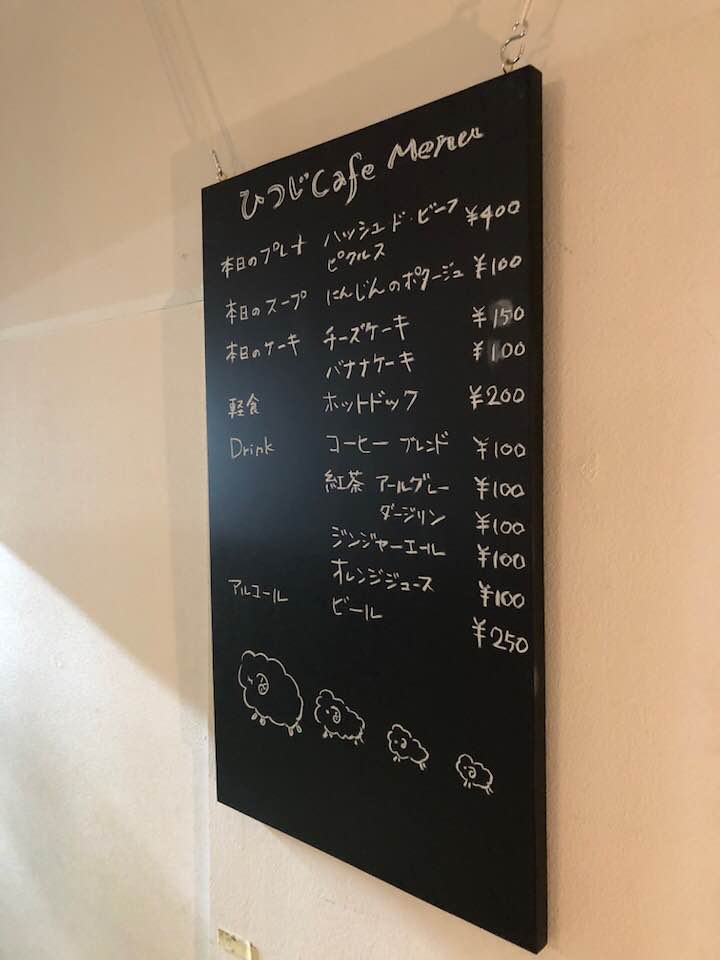 ひつじCafe Menu
本日のプレート ハッシュド・ビーフ ¥400
ピクルス
本日のスープ にんじんのポタージュ ¥100
本日のケーキ チーズケーキ ¥150
バナナケーキ ¥100
軽食 ホットドック ¥200
Drink コーヒー ブレンド ¥100
紅茶 アールグレー ¥100
ダージリン ¥100
ジンジャーエール ¥100
オレンジジュース ¥100
アルコール ビール ¥250